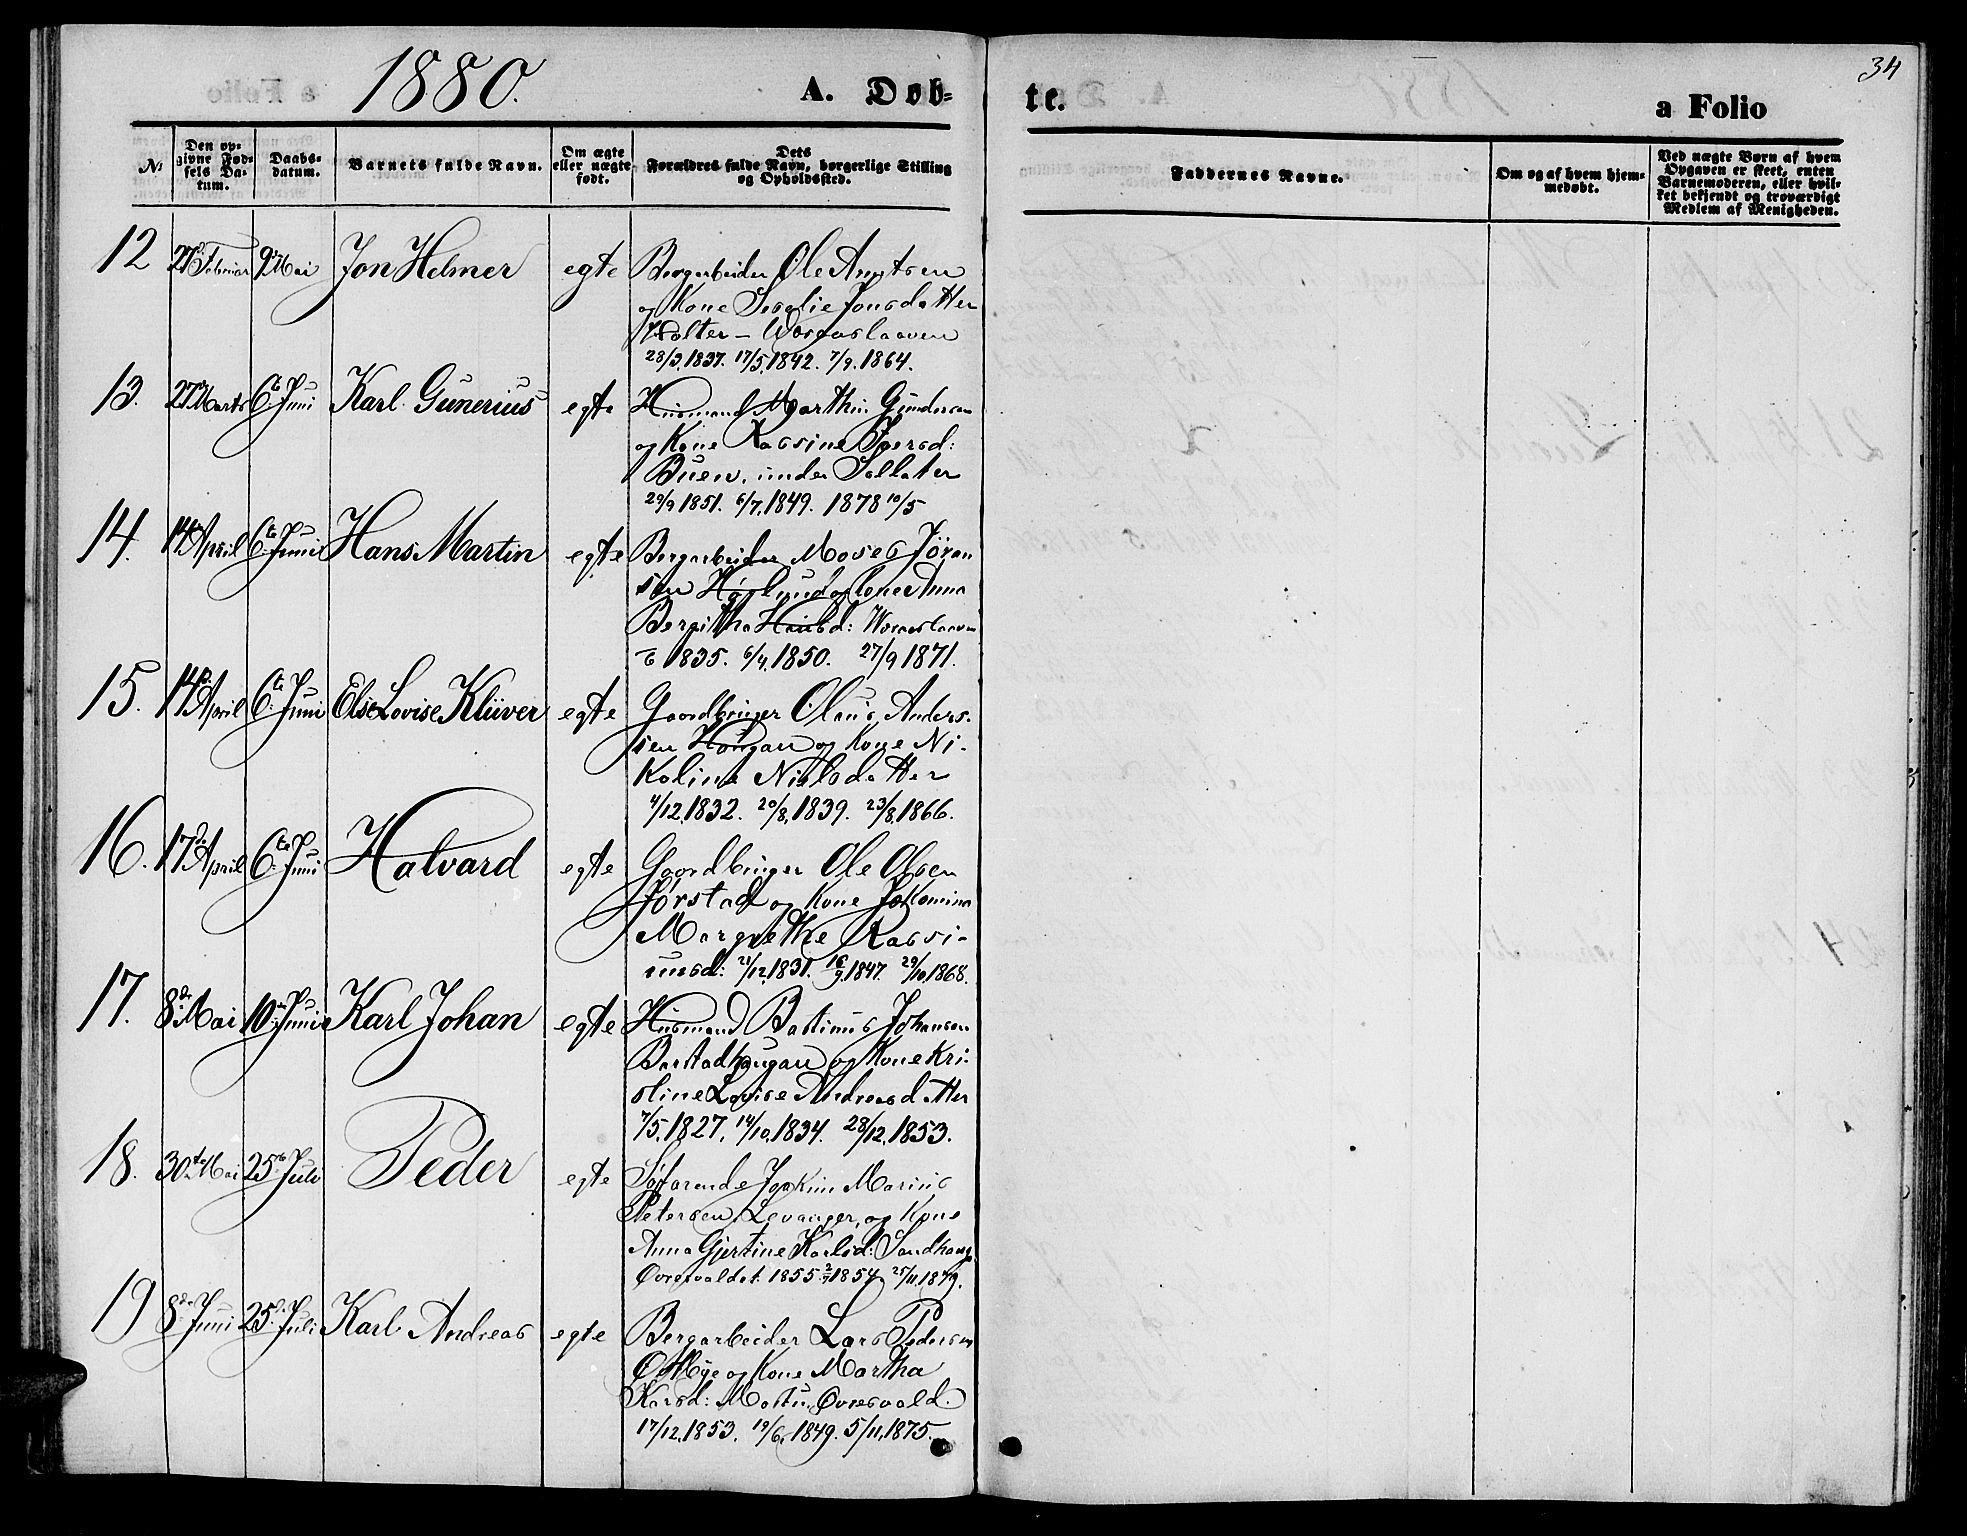 1880.
A. Døb-
te.
34
a Folio
№
Den op-
givne Fød-
sels Da-
tum.
Daabs-
datum.
Barnets fulde Navn.
Om ægte
eller uægte
født.
Dets
Forældres fulde Navn, borgerlige Stilling
og Opholdssted.
Faddernes Navne.
Om og af hvem hjem-
medøbt.
Ved uægte Børn af hvem
Opgaven er skeet, enten
Barnemoderen, eller hvil-
ket bekjendt og troværdigt
Medlem af Menigheden.
12 27 Februar 9 Mai Jon Helmer egte Bergarbeider Ole Arntsen
og Kone Jonsdatter
28/3.1837. 17/5.1842. 7/9.1864.
13. 27 Marts 6 Juni Karl Gunerius egte Husmand Marthin Gundersen
og Kone Rassine Iversd:
Buen, under
29/9 1851. 6/7.1849. 1878 10/5
14. 14 April 6te Juni Hans Martin egte Bergarbeider Moses Jøran
sen Høglund og Kone Anna
Bergitha
1835. 6/4.1850. 27/9 1871.
15. 14 April 6te Juni Else Lovise Klüver egte Gaardbruger Olaus Anders-
sen Haugan og Kone Ni-
koline Nilsdatter
4/12.1832. 20/8.1839. 23/8.1866.
16. 17de April 6te Juni Halvard egte Gaardbruger Ole Olsen
Jørstad og Kone
Margrethe Rassi-
musd: 21/12.1831. 16/9.1847. 29/10.1868.
17. 8de Mai 10de Juni Karl Johan egte Husmand Bastinus Johansen
Barstadhaugan og Kone Kri-
stine Lovise Andreasdatter
7/5.1827. 14/10.1834. 28/12.1853.
18. 30te Mai 25 Juli Peder egte Søfarende Joakim Marius
Petersen, Levanger, og Kone
Anna Gjertine Karlsd: Sandhaug
1855 1854
19 8de Juni 25 Juli Karl Andreas egte Bergarbeider Lars Pedersen
og Kone Martha
17/12.1853. 19/6.1849. 5/11.1875.